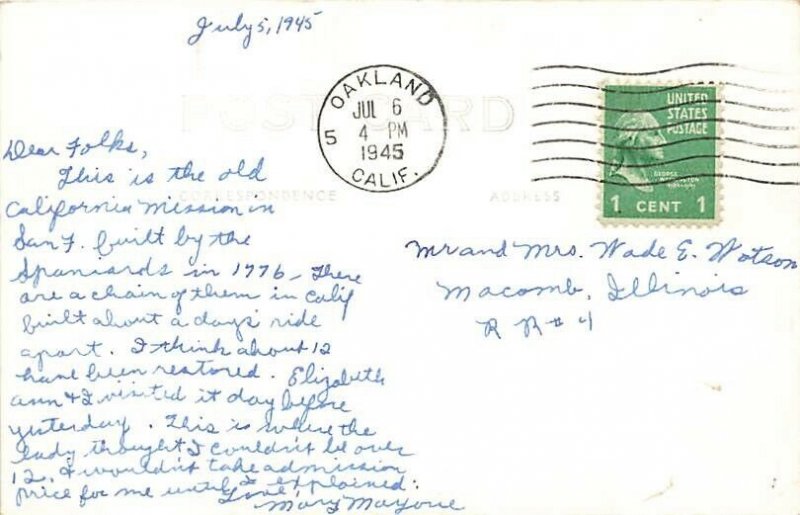 July 5, 1945
OAKLAND
JUL 6
5 4 PM
1945
CALIF.
UNITED
STATES
POSTAGE
GEORGE
WASHINGTON
1 CENT 1
POST CARD
CORRESPONDENCE
ADDRESS
Dear Folks,
This is the old
California Mission in
San F. built by the
Spaniards in 1776 - There
are a chain of them in Calif
built about a days' ride
apart. I think about 12
have been restored. Elizabeth
Ann & I visited it day before
yesterday. This is where the
lady thought I couldn't be over
12, & wouldn't take admission
price for me until I explained.
Love,
Mary Marjorie
Mr and Mrs. Wade E. Watson
Macomb, Illinois
R R # 4